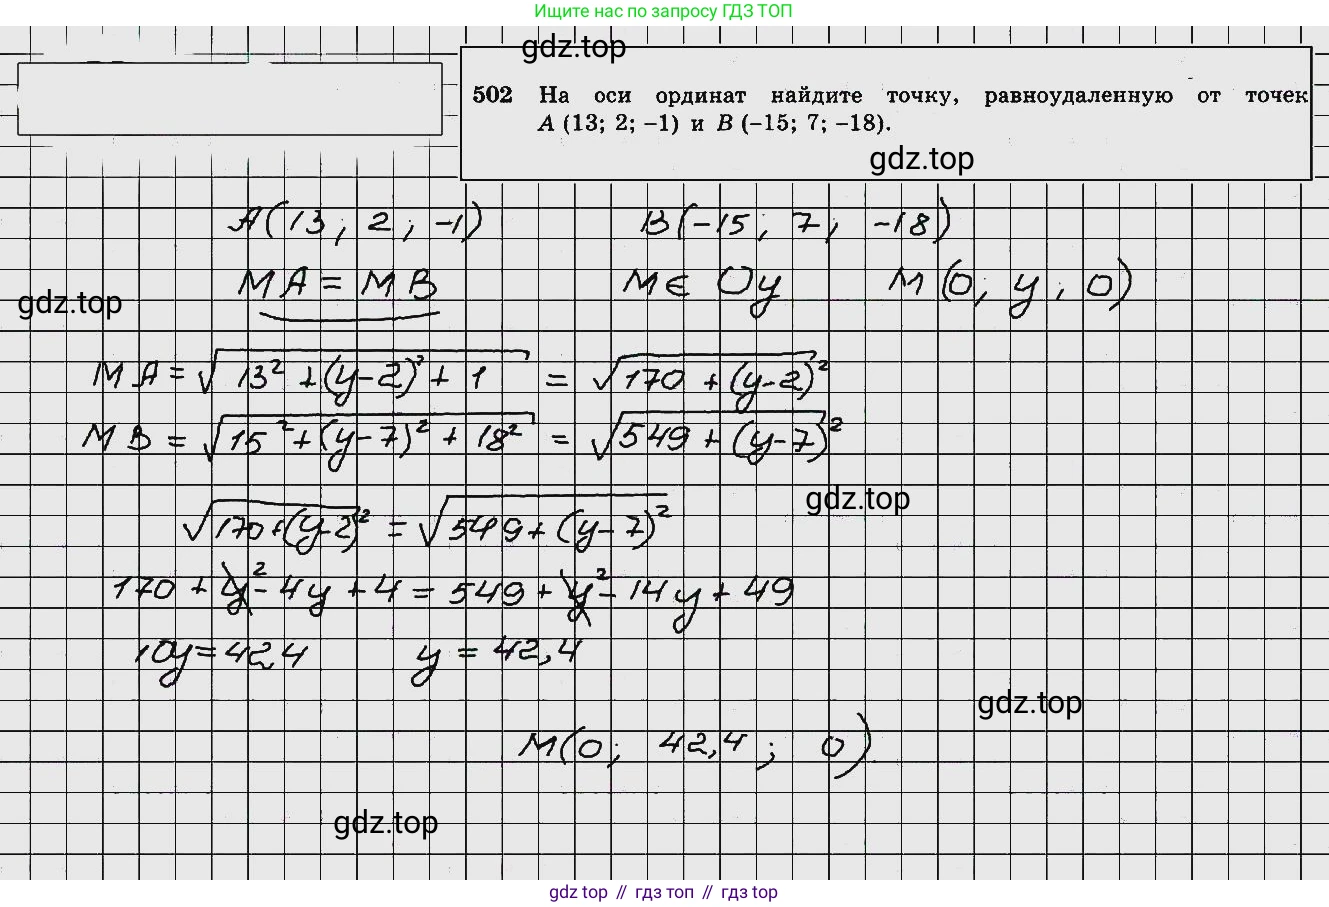 Ищите нас по запросу ГДЗ ТОП
gdz.top
502 На оси ординат найдите точку, равноудаленную от точек
A (13; 2; −1) и B (−15; 7; −18).
gdz.top
A(13; 2; -1) B(-15; 7; -18)
MA = MB M ∈ Oy M(0; y; 0)
gdz.top
MA = √(13² + (y-2)² + 1) = √(170 + (y-2)²)
MB = √(15² + (y-7)² + 18²) = √(549 + (y-7)²)
gdz.top
√(170+(y-2)²) = √(549+(y-7)²)
170 + y² - 4y + 4 = 549 + y² - 14y + 49
10y = 424 y = 42,4
gdz.top
M(0; 42,4; 0)
gdz.top
gdz top // гдз топ // гдз top